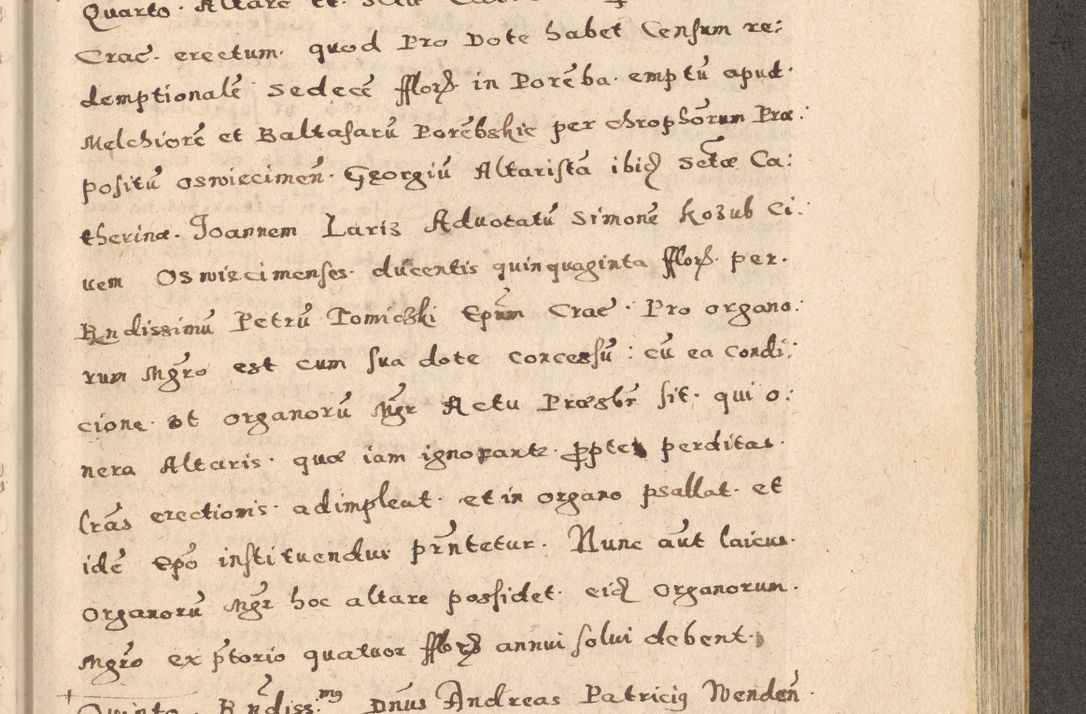 Quarto. Altare et
Crac. erectum. quod Pro Dote habet Censum re:
demptionalē Sedecē fflorꝫ in Porēba. emptū apud.
Melchiorē et Baltasarū Porēbskie per chrophorum Præ:
positū oswiecimeñ. Georgiū Altaristā ibidꝫ Sctæ Ca:
therinæ. Joannem Laris Aduocatū Simonē kozub Ci:
uem Oswiecimenses. ducentis quinquaginta fflorꝫ. per.
Rndissimū Petrū Tomiczki Epum Crac. Pro organo:
rum Mgro est cum sua dote concessū: cū ea condi:
cione. ut organorū Mgr Actu Præsbr sit. qui o:
nera Altaris. quæ iam ignorantr ꝓpter perditas.
lras erectionis. adimpleat. et in organo psallat. et
idē Epō instituendus prntetur. Nunc aūt laicus.
Organorū Mgr hoc altare possidet. eidꝫ Organorum.
Mgro ex ptorio quatuor fflorꝫ annui solui debent.
Quinto. Rndiss.mꝰ Dnus Andreas Patriciꝰ Nendeñ.